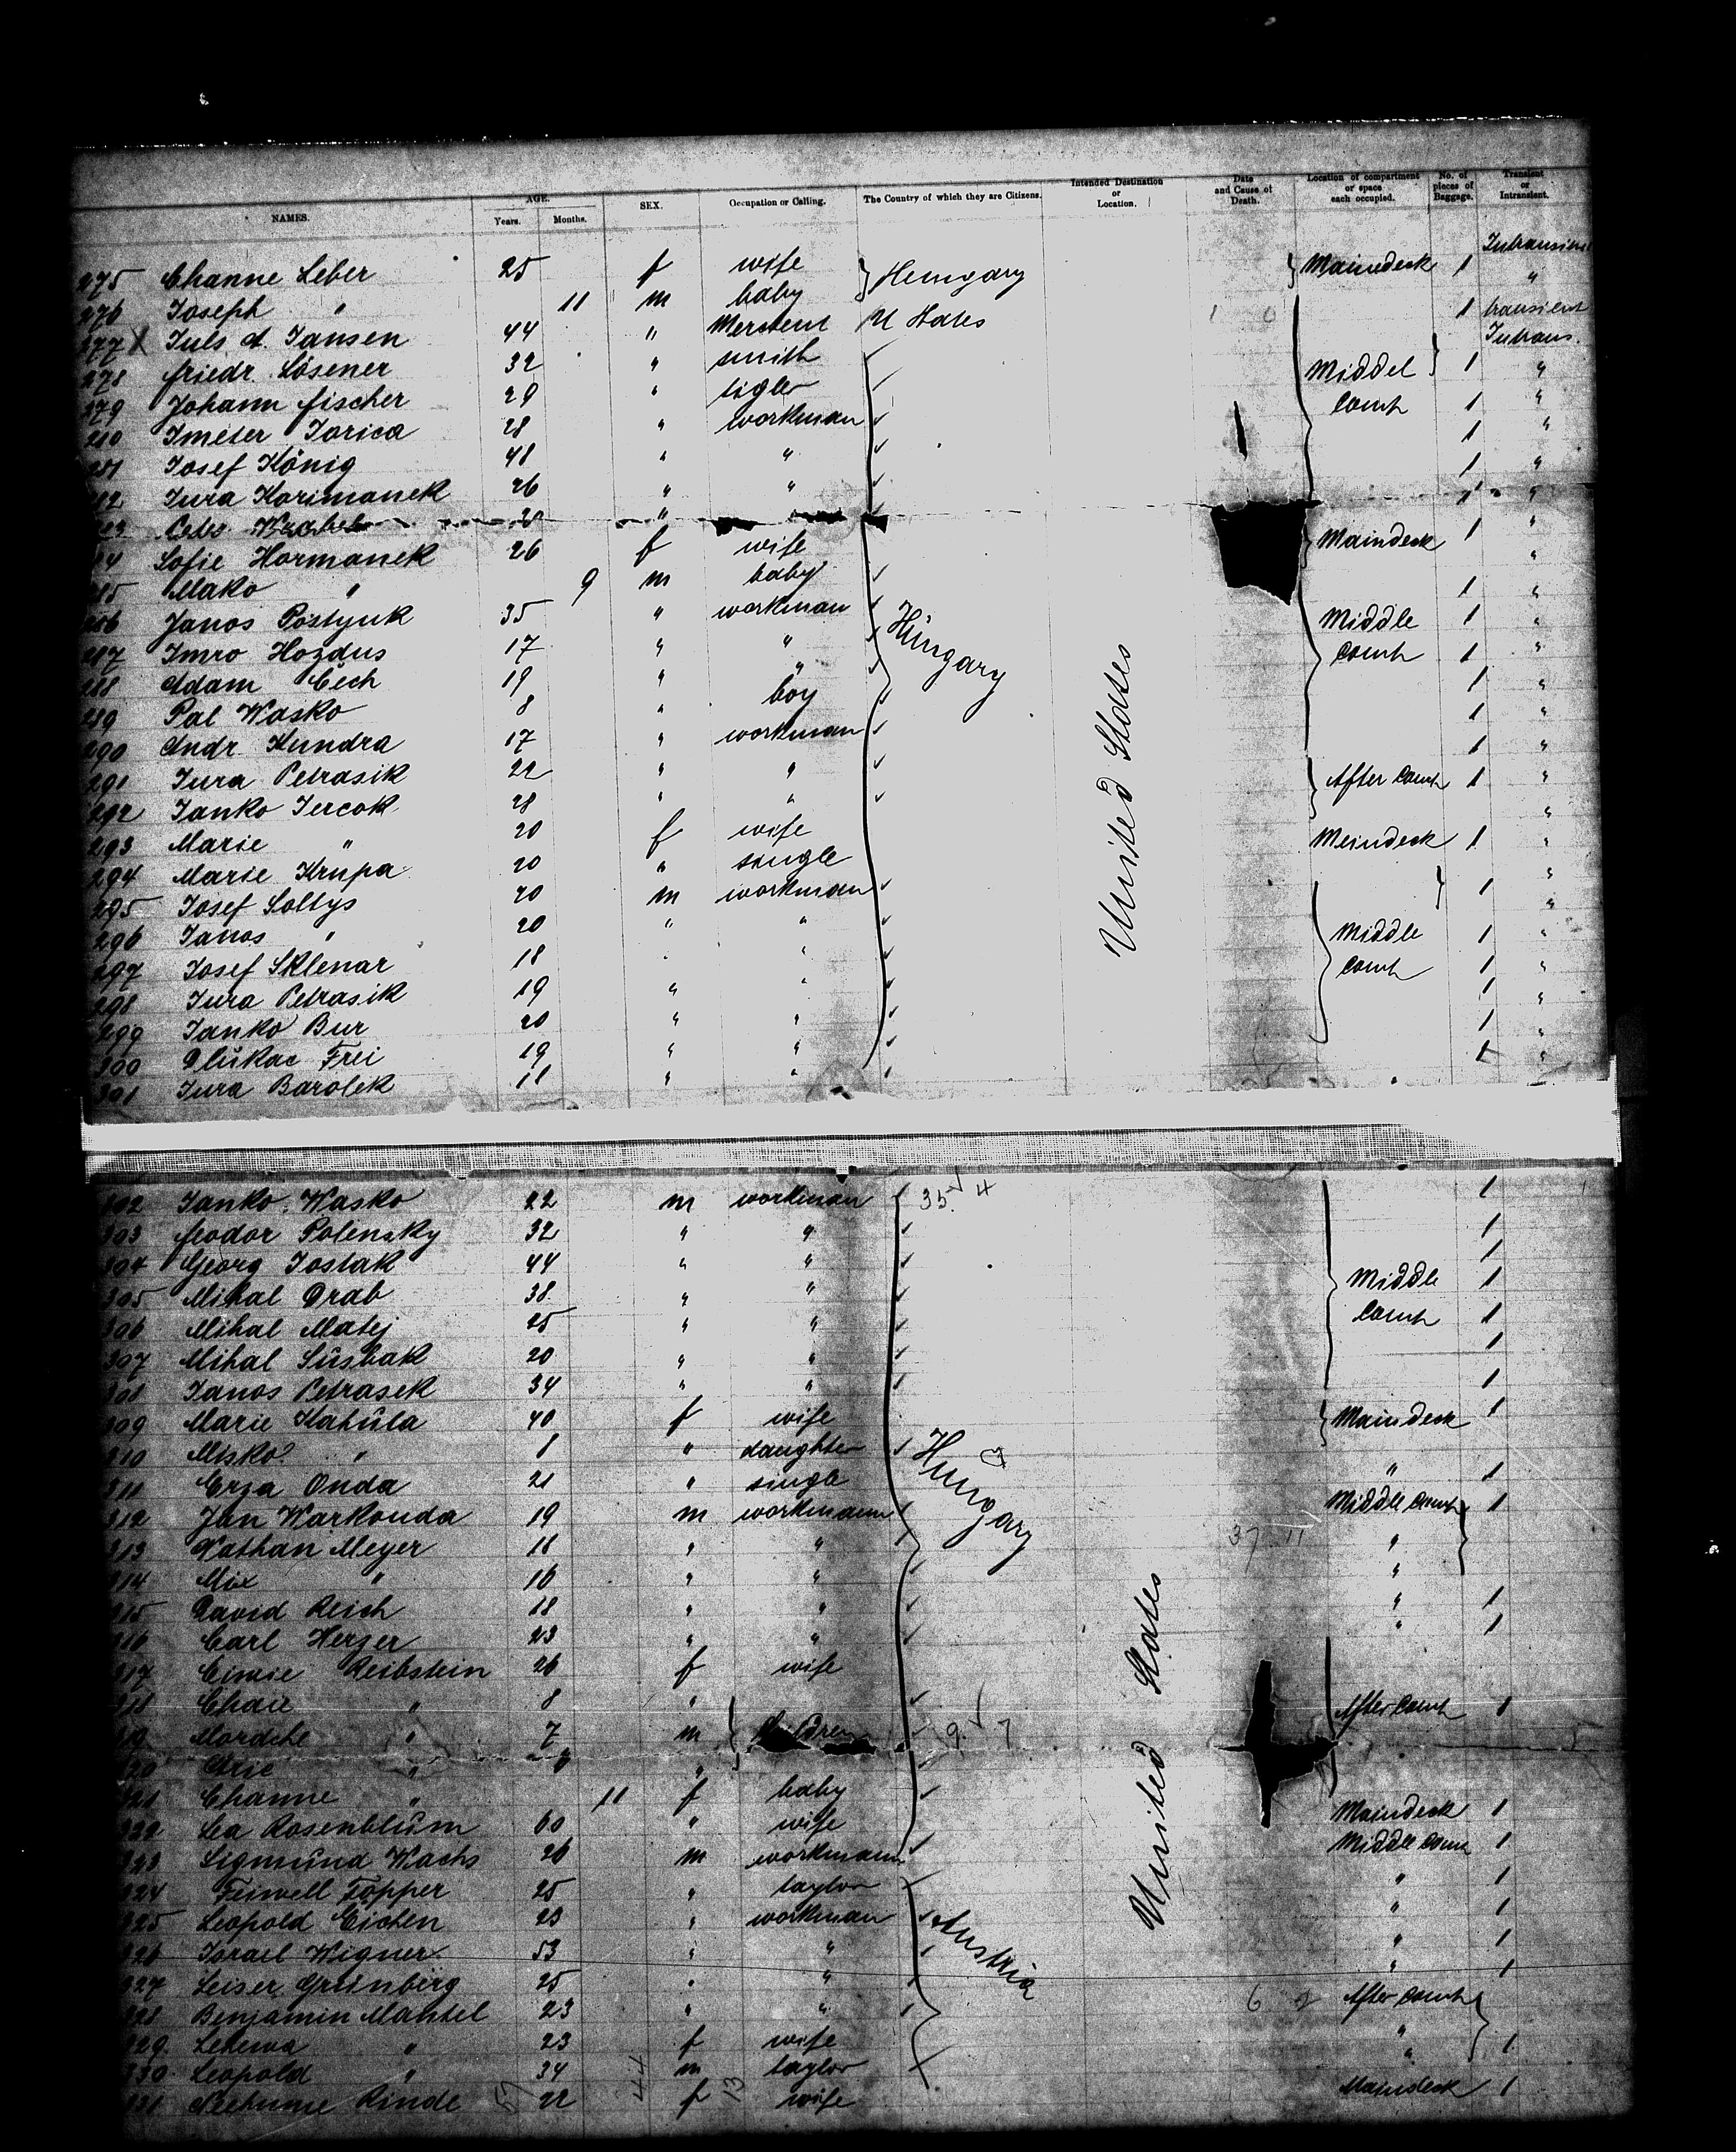 NAMES. AGE. Years. Months. SEX. Occupation or Calling. The Country of which they are Citizens. Intended Destination or Location. Date and Cause of Death. Location of compartment or space each occupied. No. of pieces of Baggage. Transient or Intransient.
275 Channe Leber 25 f wife Hungary Maindeck 1 Intransient
276 Joseph " 11 m baby "
277 X Juls A. Jansen 44 " U States 1 transient
278 friedr. Lösener 32 " smith Intrans.
279 Johann fischer 29 " Middel comt 1 "
280 Imeter Jorica 28 " workman 1 "
281 Josef König 48 " " 1 "
282 Jura Horimanek 26 " " 1 "
283 20 " 1 "
284 Sofie Hormanek 26 f wife Maindeck 1 "
285 Mako " 9 m baby "
286 Janos Postynk 35 " workman 1 "
287 Imro Hozdus 17 " " Hungary Middle comt 1 "
288 Adam Cech 19 " " 1 "
289 Pal Wasko 8 " boy 1 "
290 Andr. Hundra 17 " workman 1 "
291 Jura Petrasik 22 " " 1 "
292 Janko Jercok 28 " " After comt 1 "
293 Marie " 20 f wife "
294 Marie Krupa 20 " single Meindeck 1 "
295 Josef Soltys 20 m workman "
296 Janos " 20 " " 1 "
297 Josef Sklenar 18 " " Middle comt 1 "
298 Jura Petrasik 19 " " 1 "
299 Janko Bur 20 " " 1 "
300 Frei 19 " " 1 "
301 Jura Barolek 18 " " 1 "
United States
302 Janko Wasko 22 m workman 35 4 1
303 feodor Polensky 32 " " 1
304 Georg Jostak 44 " " 1
305 Mihal Drab 38 " " Middle comt 1
306 Mihal Matej 25 " " 1
307 Mihal Susbak 20 " " 1
308 Janos Petrasek 34 " " 1
309 Marie Kahula 40 f wife Maindeck 1
310 Misko " 1 " daughter Hungary
311 Erza Onda 21 " single " 1
312 Jan Warkonda 19 m workmann Middle comt 1
313 Nathan Meyer 18 " " 37 11 "
314 Mix " 16 " " "
315 David Reich 18 " " " 1
316 Carl Herzer 23 " " " 1
317 Reibstein 26 f wife
318 Chaie " 8 " After comt 1
319 Mordche " 7 m Children 9 7
320 " "
321 Channe " 11 f baby
322 Lea Rosenblum 60 " wife Maindeck 1
323 Sigmund Wachs 26 m workmann Middle comt 1
324 Feiwell Topper 25 " taylor " 1
325 Leopold Eichen 23 " workman Austria " 1
326 Israel Wigner 53 " " " 1
327 Leiser Grünberg 25 " " " 1
328 Benjamin Mantel 23 " " 6 2 After comt
329 " 23 f wife "
330 Leopold " 34 m taylor " 1
331 Rinde 22 f wife Maindeck 1
57 44 13
United States